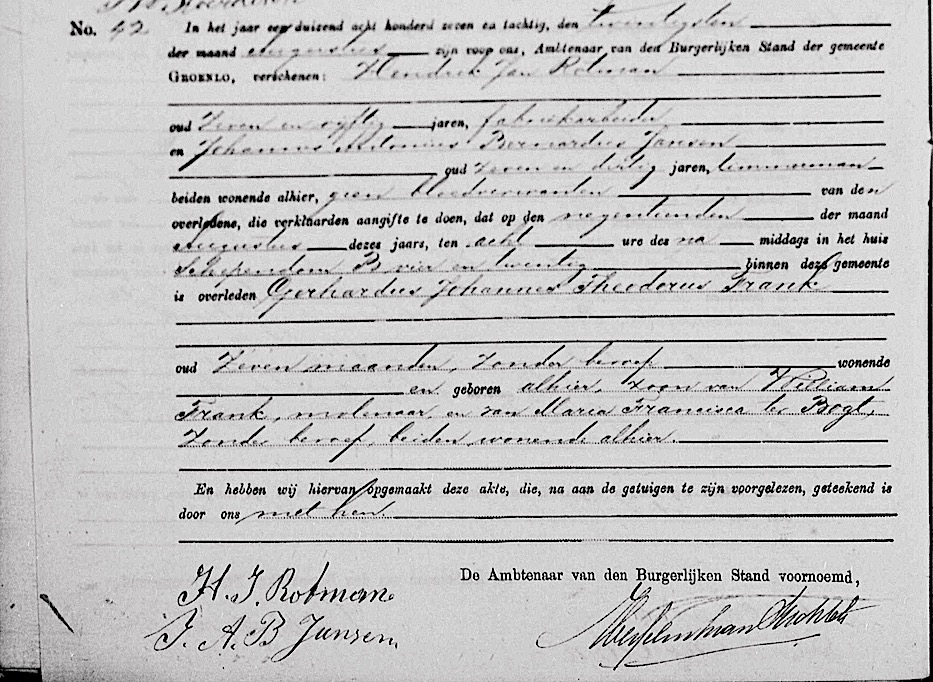 No. 42 In het jaar een duizend acht honderd zeven en tachtig, den twintigsten
der maand Augustus zijn voor ons, Ambtenaar van den Burgerlijken Stand der gemeente
GROENLO, verschenen: Hendrik Jan Rotman
oud zeven en vijftig jaren, fabriekarbeider
en Johannes Antonius Bernardus Jansen
oud zeven en dertig jaren, timmerman
beiden wonende alhier, geen bloedverwanten van den
overledene, die verklaarden aangifte te doen, dat op den negentienden der maand
Augustus dezes jaars, ten acht ure des na middags in het huis
Schependom B vier en twintig binnen deze gemeente
is overleden Gerhardus Johannes Theodorus Frank
oud zeven maanden, zonder beroep wonende
en geboren alhier, zoon van William
Frank, molenaar en van Maria Francisca te Bogt,
zonder beroep, beiden wonende alhier.
En hebben wij hiervan opgemaakt deze akte, die, na aan de getuigen te zijn voorgelezen, geteekend is
door ons met hen.
De Ambtenaar van den Burgerlijken Stand voornoemd,
H. J. Rotman
J. A. B Jansen.